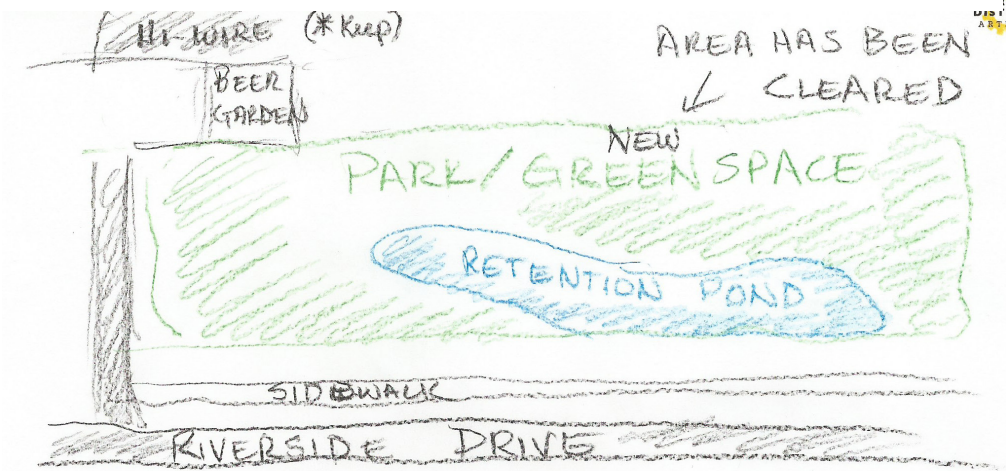 HI-WIRE (* Keep)
BEER
GARDEN
AREA HAS BEEN
CLEARED
NEW
PARK/GREEN SPACE
RETENTION POND
SIDEWALK
RIVERSIDE DRIVE